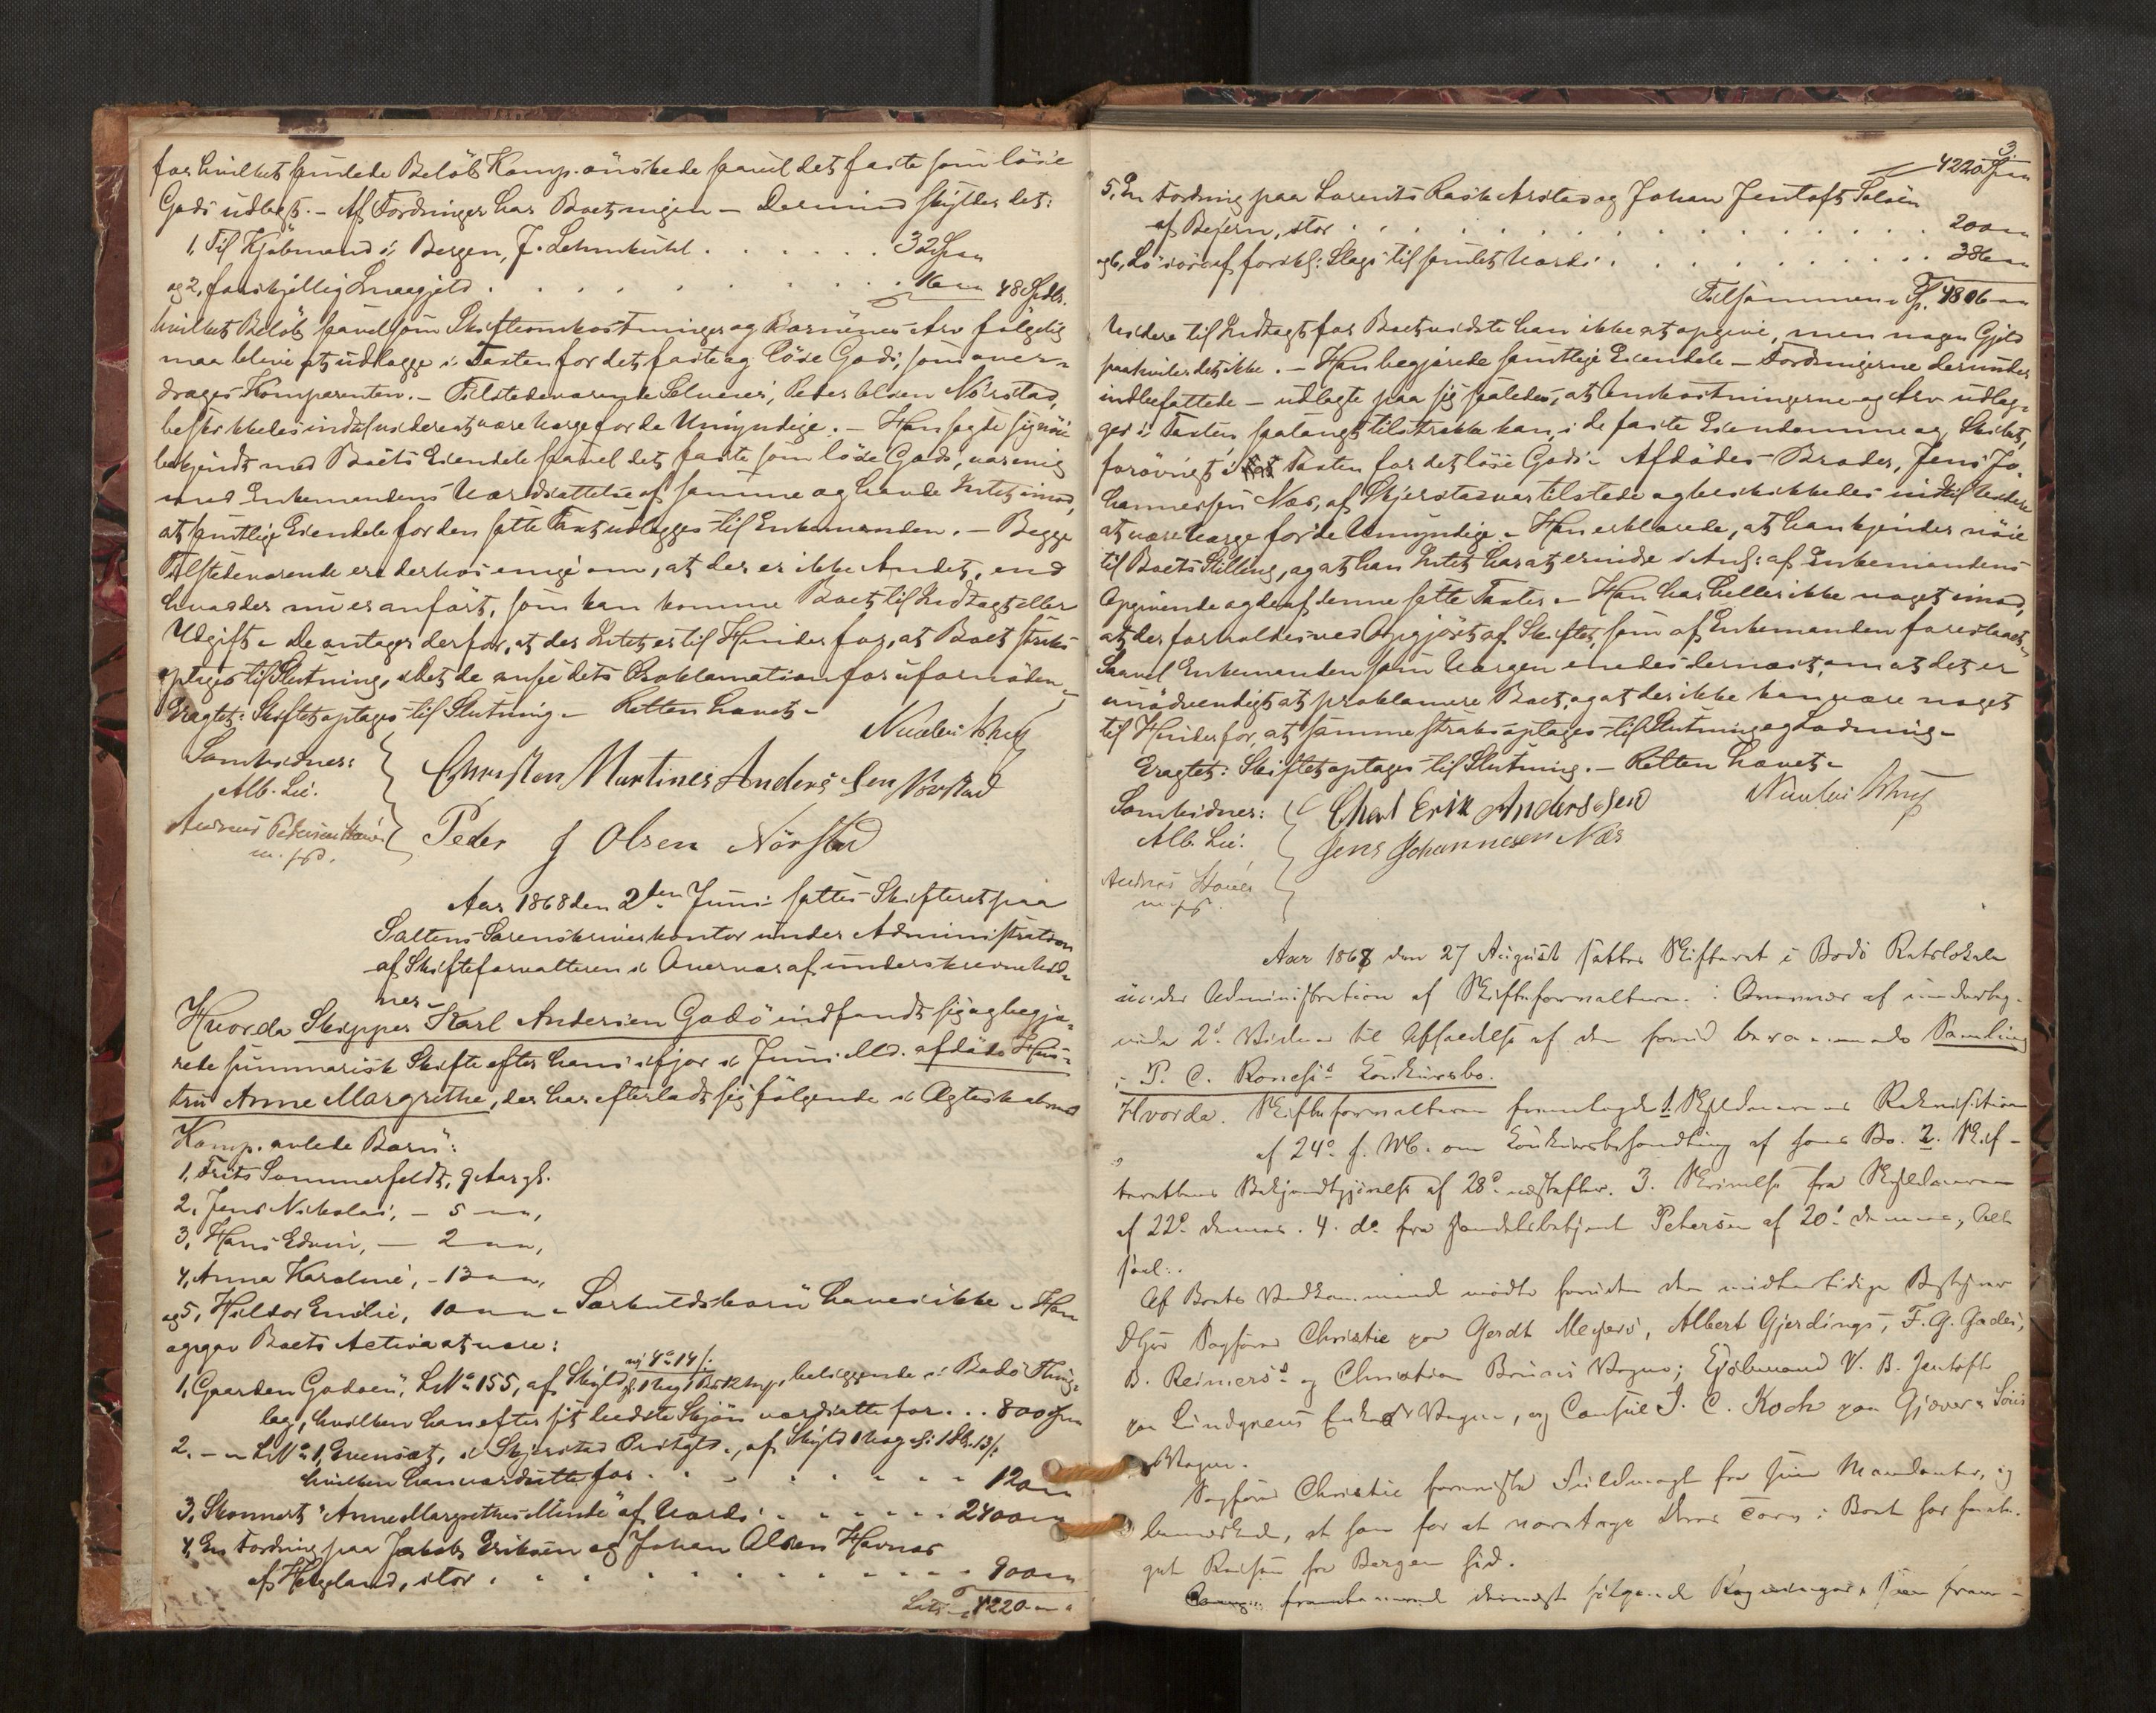 for hvilket samlede Beløb Komp. ønskede saavel det faste som løse
Gods udlagt. – Af Fordringer har Boet ingen – Derimod skylder det:
1, Til Kjøbmand i Bergen, J. Lehmkuhl . . . . . . 32 Spd
og 2, forskjellig Smaagjæld . . . . . . . . . 16 " " 48 Spdlr.
hvilket Beløb saavelsom Skifteomkostninger og Børnenes Arv følgelig
maa blive at udlægge i Taxten for det faste og løse Gods, som over-
drages Komparenten. – Tilstedeværende Selveier, Peder Olsen Nörstad,
beskikkedes indtil videre at være Værge for de Umyndige. – Han sagde sig nöie
bekjendt med Boets Eiendele saavel det faste som løse Gods, var enig
med Enkemandens Værdsættelse af samme og havde Intet imod,
at samtlige Eiendele for den satte Taxt udlægges til Enkemanden. – Begge
Tilstedeværende ere derhos enige om, at der er ikke Andet, end
hvad der nu er anført, som kan komme Boet til Indtægt eller
Udgift. De antager derfor, at der Intet er til Hinder for, at Boet straks
optages til Slutning, idet de anse dets Proklamation for ufornöden.
Eragtet: Skiftet optages til Slutning. – Retten hævet. –
Samvidner:
Alb. Lie.
Christen Martines Anders sen Nörstad
Peder J Olsen Nörstad
Aar 1868 den 2den Juni sattes Skifteret paa
Saltens Sorenskriverkontor under Administration
af Skifteforvalteren i Overvær af underskrevne Vid-
ner
Hvorda Skipper Karl Andersen Godö indfandt sig og begjæ-
rede summarisk Skifte efter hans ifjor i Juni Md. afdöde Hus-
tru Anne Margrethe, der har efterladt sig følgende i Ægteskab med
Komp. avlede Børn:
1, Frits Sommerfeldt, 9 Aar gl.
2, Jens Nikolai, – 5 " ",
3, Hans Edvin, – 2 " ",
4, Anna Karoline, – 13 " ",
og 5, Hildor Emilie, 10 " " – Særkuldsbørn haves ikke. Han
opgav Boets Activa at være:
1, Gaarden Godoen, L No 155, af Skyld, beliggende i Bodö Thing-
lag, hvilken han efter sit bedste Skjön værdsatte for . . . 800 Spd
2, – " L No 1, Evensæt, i Skjerstad Prstgld., af Skyld
hvilken han værdsatte for . . . . . . . . 120 "
3, Skonnert "Anne Margrethes Minde" af Værdi . . . . . . 2400 "
4, En Fordring paa Jakob Eriksen og Johan Olsen Havnæs
af Helgeland, stor . . . . . . . . . . . 900 "
Lats 4220 "
3.
4220 Spd
5, En Fordring paa Lorents Rask Arstad og Johan Jentoft Soløen
af Bejern, stor . . . . . . . . . . . . . 200 "
og 6, Lösöre af forskj: Slags til samlet Værdi . . . . . . . . 386 "
Tilsammen Sp. 4806 "
Videre til Indtægt for Boet vidste han ikke at opgive, men nogen Gjæld
paahviler det ikke. – Han begjærede samtlige Eiendele – Fordringerne derunder
indbefattede – udlagte paa sig saaledes, at Omkostningerne og Arv udlæg-
ges i Taxten, saalangt tilstrække kan, i de faste Eiendomme og Skibet,
forøvrigt i Taxten for det løse Gods. Afdödes Broder, Jens Jo-
hannessen Næs, af Skjerstad var tilstede og beskikkedes indtil videre
at være Værge for de Umyndige. – Han erklærede, at han kjender nöie
til Boets Stilling, og at han Intet har at erindre i Anl: af Enkemandens
Opgivende og de af denne satte Taxter. – Han har heller ikke noget imod,
at der forholdes ved Opgjöret af Skiftet, som af Enkemanden foreslaaet.
Saavel Enkemanden som Værgen enedes dernæst om at det er
unödvendigt at proklamere Boet, og at der ikke kan være noget
til Hinder for, at samme straks optages til Slutning og Lodning. –
Eragtet: Skiftet optages til Slutning. – Retten hævet. –
Samvidner:
Alb. Lie.
Charl Erik Anderssen
Jens Johannesen Næs
Aar 1868 den 27 August sattes Skifteret i Bodö Retslokale
under Administration af Skifteforvalteren i Overvær af underteg-
nede 2de Vidner til Afholdelse af den forud berammede Samling
i P. C. Rones's Konkursbo.
Hvorda. Skifteforvalteren fremlagde 1. Skyldnerens Rekvisition
af 24de f. M. om Konkursbehandling af hans Bo. 2. Skif-
terettens Bekjendtgjörelse af 28de næstefter. 3. Skrivelse fra Skyldneren
af 22de dennes. 4. do fra Handelsbetjent Petersen af 20de dennes, Alt
saal:.
Af Boets Vedkommende mødte foruden den midlertidige Bestyrer
Sagförer Christie paa Gerdt Meyers, Albert Gjerdings, F. G. Gades,
B. Reimers's og Christian Bruuns Vegne; Kjøbmand V. B. Jentoft
paa Lindgrens Enkes Vegne, og Consul J. C. Koch paa Gjæver & Söns
Vegne.
Sagförer Christie foreviste Fuldmagt fra sine Mandanter, og
bemærkede, at han for at varetage deres Tarv i Boet har foreta-
get Reisen fra Bergen hid.
fremkommende dernæst følgende Regninger, som frem-